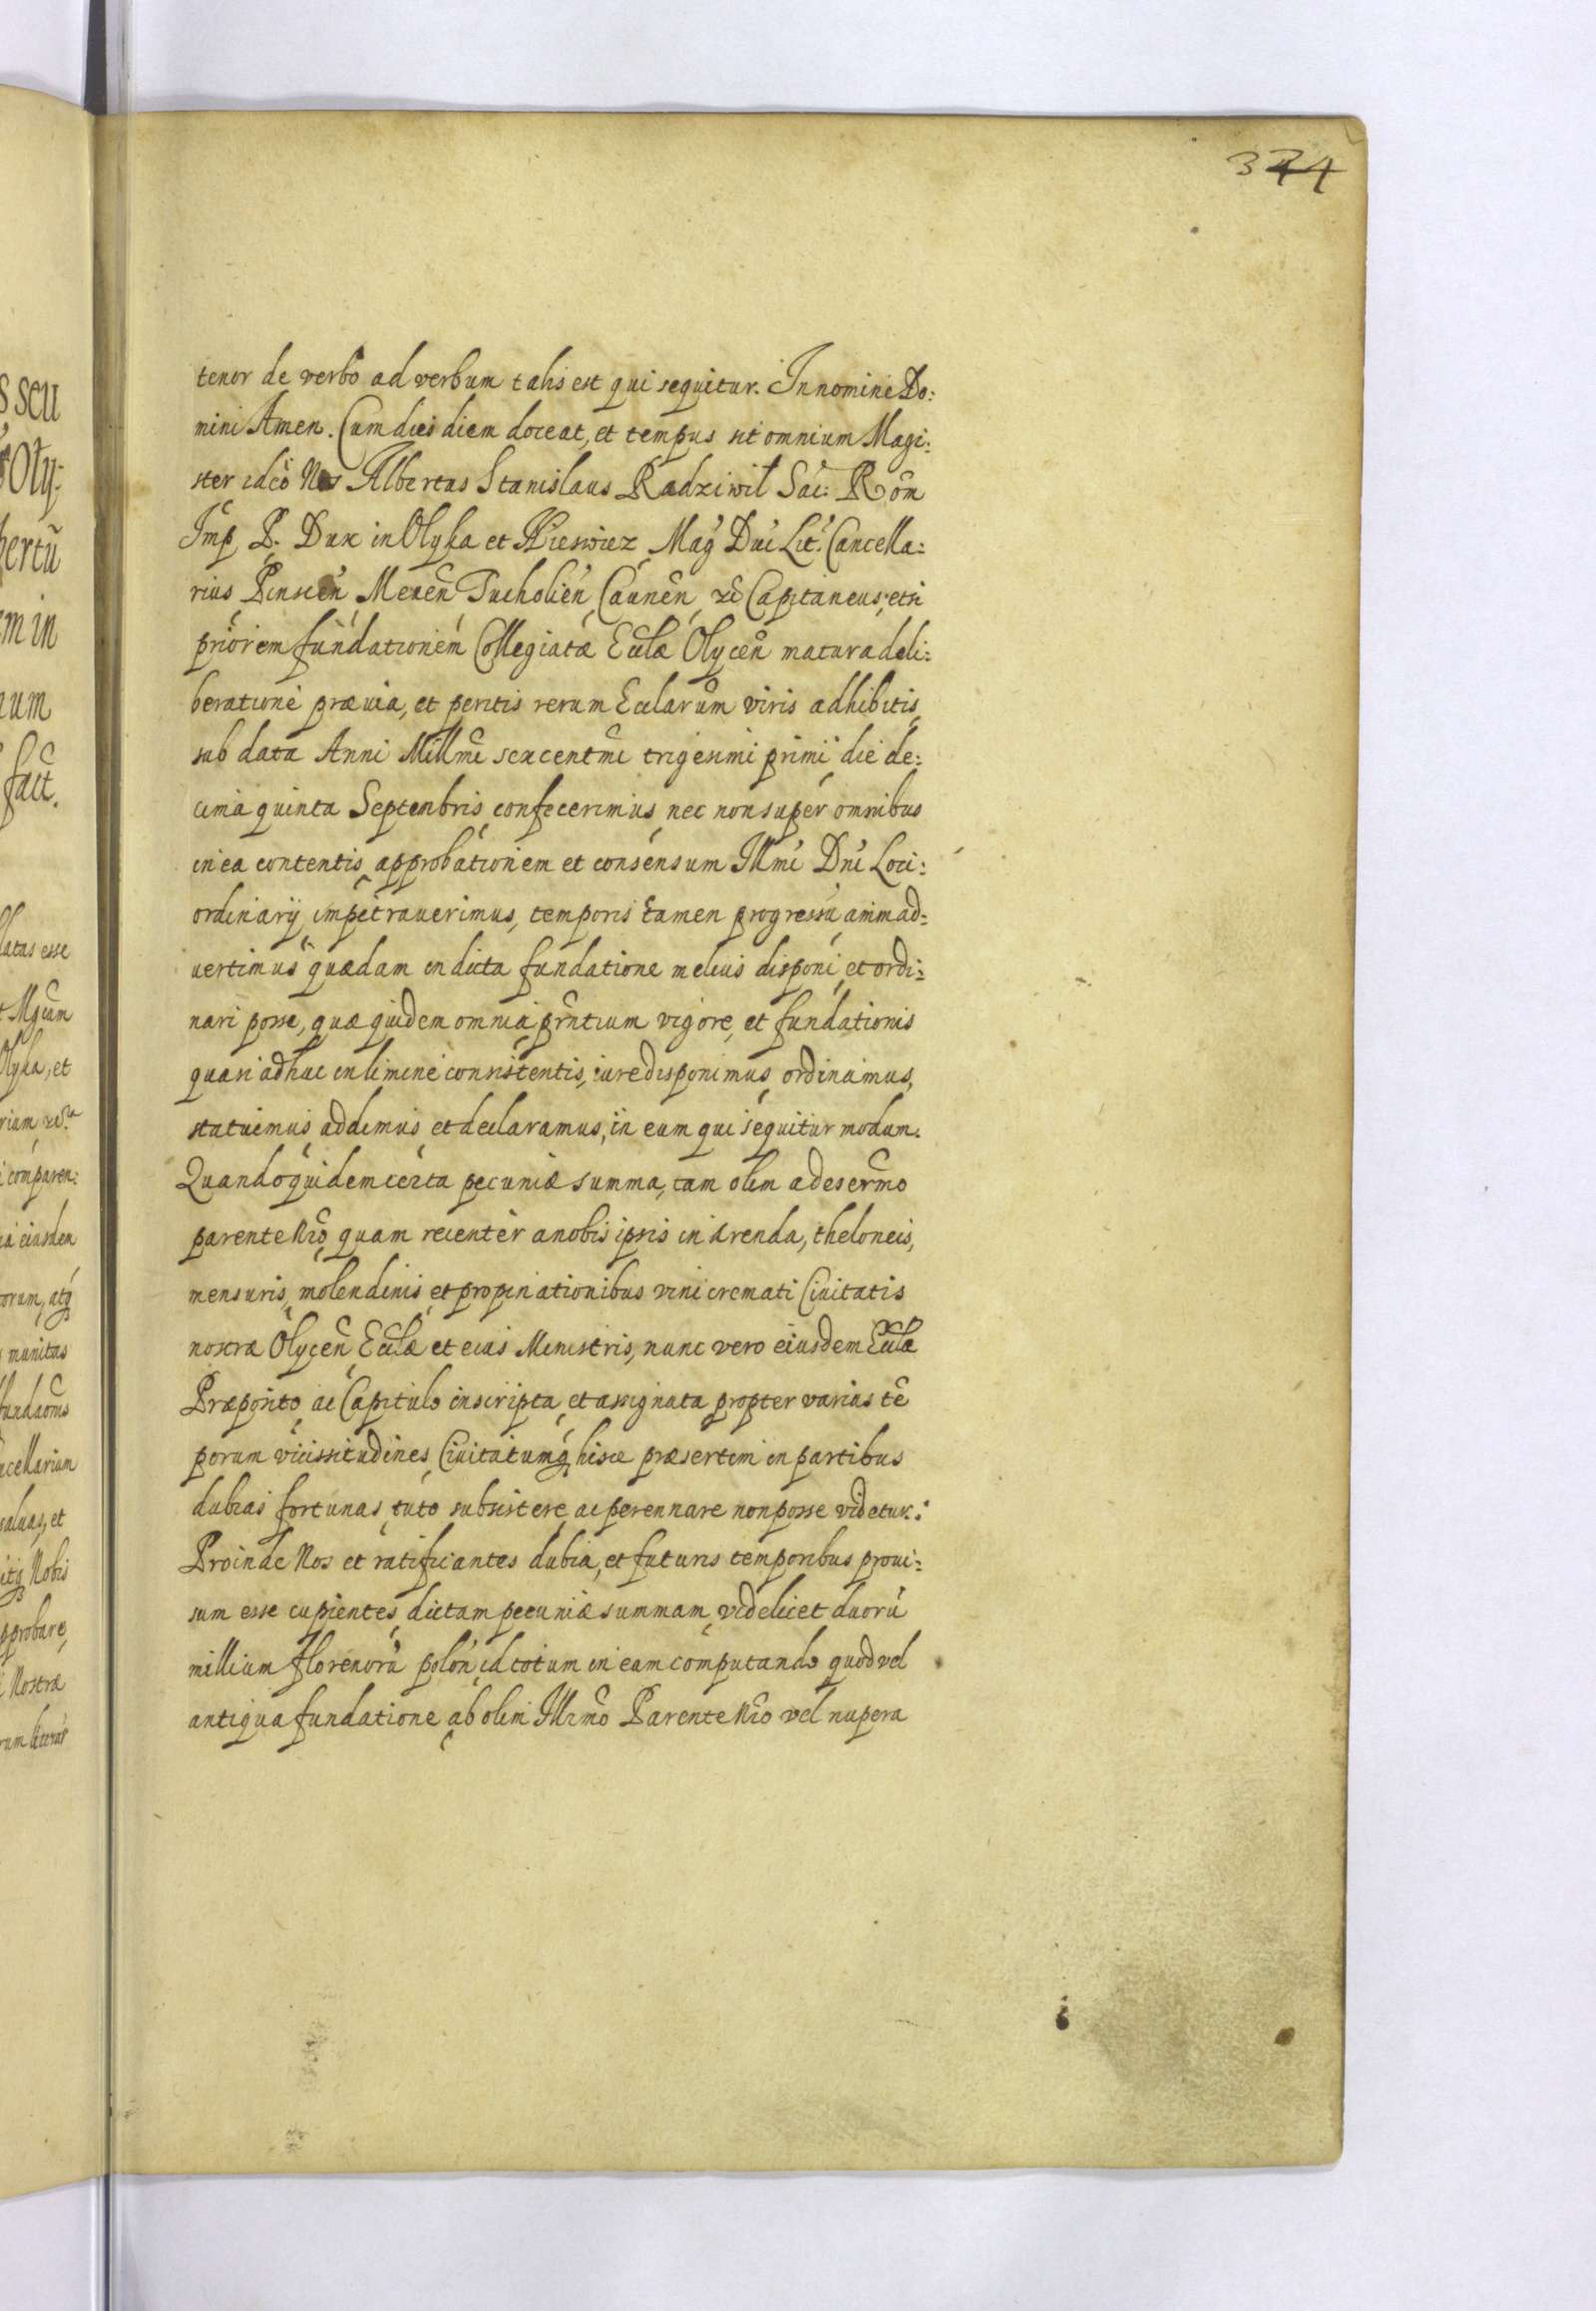 344
tenor de verbo ad verbum talis est qui sequitur. In nomine Do:
mini Amen. Cum dies diem doceat, et tempus sit omnium Magi:
ster ideo Nos Albertus Stanislaus Radziwil Sac: Rom̃
Imp P. Dux in Olyka et Nieswiez Mag Duc Lit. Cancella:
rius Pinscen Meven Tucholien Caunen, zc Capitaneus, etsi
priorem fundationem Collegiatæ Ecclæ Olyceñ matura deli:
beratione præuia, et peritis rerum Ecclarum viris adhibitis,
sub data Anni Millmi sexcentmi trigesimi primi die de:
cima quinta Septembris confecerimus, nec non super omnibus
in ea contentis, approbationem et consensum Illmi Dni Loci:
ordinarij impetrauerimus, temporis tamen progressu, animad:
uertimus quædam in dicta fundatione melius disponi, et ordi:
nari posse, quæ quidem omnia, pñtium vigore, et fundationis
quasi adhuc in limine consistentis, iure disponimus, ordinamus,
statuimus, addimus, et declaramus, in eum qui sequitur modum.
Quandoquidem certa pecuniæ summa, tam olim a desermo
parente nro, quam recenter a nobis ipsis in Arenda, theloneis,
mensuris, molendinis, et propinationibus vini cremati Ciuitatis
nostræ Olyceñ, Ecclæ et eius Ministris, nunc vero eiusdem Ecclæ
Præposito, ac Capitulo inscripta, et assignata propter varias tẽ
porum vicissitudines, Ciuitatumq hisce præsertim in partibus
dubias fortunas, tuto subsistere, ac perennare non posse videtur:
Proinde Nos et ratificantes dubia, et futuris temporibus proui:
sum esse cupientes, dictam pecuniæ summam, videlicet duorũ
millium florenorũ polon, id totum in eam computando quod vel
antiqua fundatione, ab olim Illrmo Parente Nro vel nupera